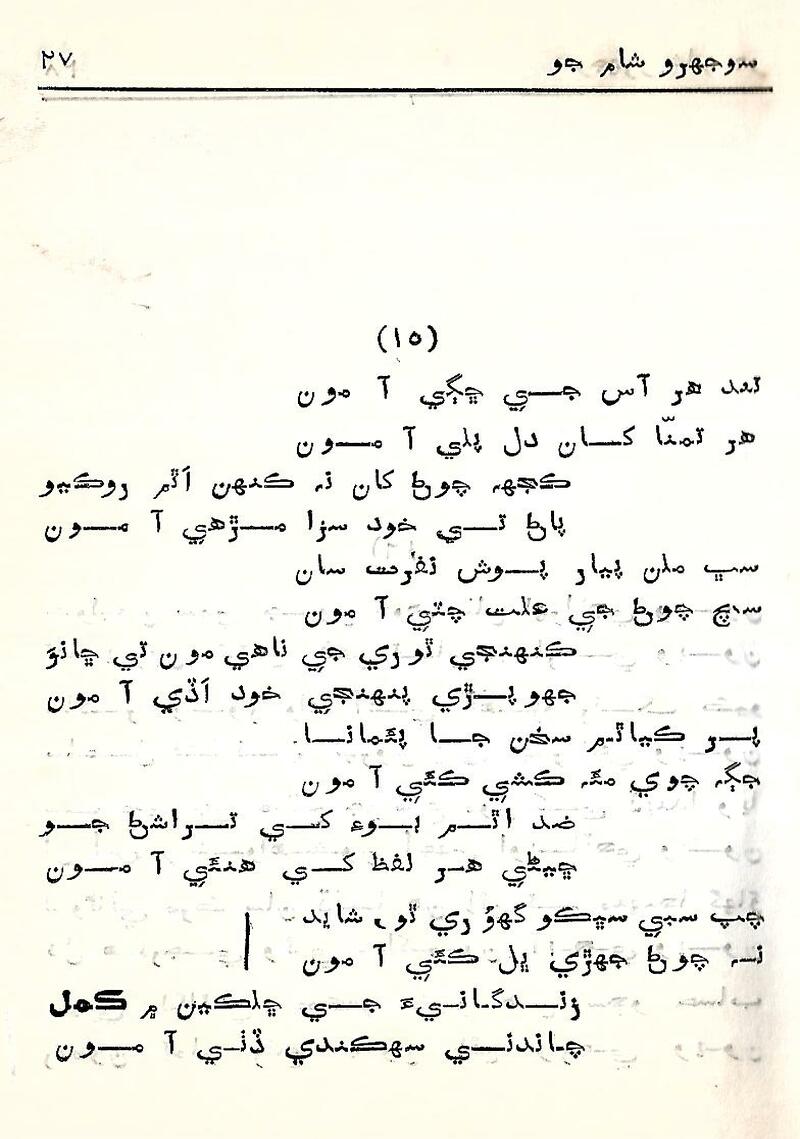 سوجهرو شام جو
٢٧
(١٥)
تند هر آس جي ڇڳي آ مون
هر تمنّا کان دل پلي آ مون
ڪجهہ چوڻ کان نہ ڪنهن اَٿم روڪيو
پاڻ تي خود سزا مڙهي آ مون
سڀ ملن پيار پوش نفرت سان
سچ چوڻ جي علت چٽي آ مون
ڪنهنجي ٿوري جي ناهي مون تي ڇانوَ
جهوپڙي پنهنجي خود اَڏي آ مون
پر ڪياٿم سخن جا پئمانا
جڳہ چوي مئہ ڪشي ڪئي آ مون
ضد اٿم بوءِ کي تراشڻ جو
ڇيڻي هر لفظ کي هنئي آ مون
چپ سبي سڀڪو گهوُري ٿو، شايد
نہ چوڻ جهڙي ڀل ڪئي آ مون
زندگانيءَ جي ڇلڪين ۾ ڪمل
چاندني سهڪندي ڏٺي آ مون